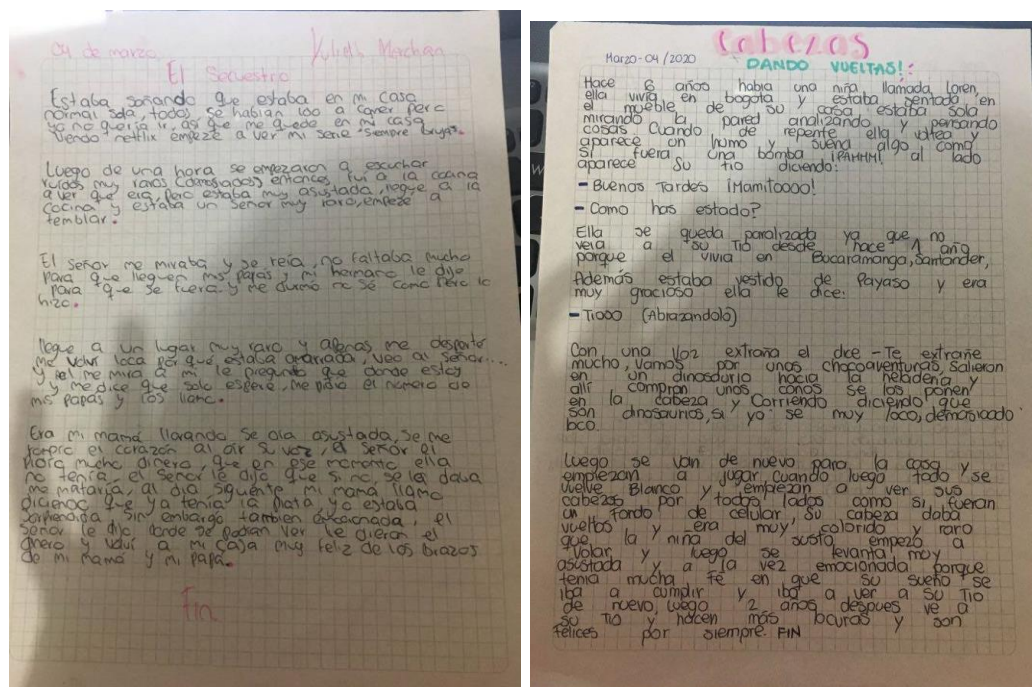 04 de marzo Yulieth Merchán
El Secuestro
Estaba soñando que estaba en mi casa
normal sola, todos se habian ido a comer pero
yo no queria ir, así que me quede en mi casa
viendo netflix empezé a ver mi serie "siempre brujas".
Luego de una hora se empezaron a escuchar
ruidos muy raros (demasiados) entonces fui a la cocina
a ver que era, pero estaba muy asustada, llegue a la
cocina y estaba un señor muy raro, empezé a
temblar.
El señor me miraba y se reía, no faltaba mucho
para que lleguen mis papas y mi hermano le dije
para que se fuera y me durmio no sé como pero lo
hizo.
llegue a un lugar muy raro y apenas me desperto
me volvi loca por qué estaba amarrada, veo al señor...
y el me mira a mi le pregunto que donde estoy
y me dice que solo espere, me pidio el número de
mis papás y los llamo.
Era mi mamá llorando se oia asustada, se me
rompio el corazón al oir su voz, el señor el
pidio mucho dinero, que en ese momento ella
no tenia, el señor le dijo que si no, se les daba
me mataria, al dia siguiente mi mamá llamo
diciendo que ya tenia la plata, yo estaba
sorprendida sin embargo tambien emocionada, el
señor le dijo donde se podian ver le dieron el
dinero y volvi a mi casa muy feliz de los brazos
de mi mamá y mi papá.
Fin
Cabezas
Marzo-04/2020 DANDO VUELTAS!
Hace 6 años habia una niña llamada Loren,
ella vivia en bogota y estaba sentada en
el mueble de su casa estaba sola
mirando la pared analizando y pensando
cosas Cuando de repente ella voltea y
aparece un humo y suena algo como
si fuera una bomba ¡PAHHM! al lado
aparece su tio diciendo:
- Buenas Tardes ¡Mamitoooo!
- Como has estado?
Ella se queda paralizada ya que no
veia a su Tio desde hace 1 año
porque el vivia en Bucaramanga, Santander,
Además estaba vestido de Payaso y era
muy gracioso ella le dice:
- Tiooo (Abrazandolo)
Con una voz extraña el dice - Te extrañe
mucho, vamos por unas chocoaventuras, salieron
en un dinosaurio hacia la heladeria y
alli compran unos conos se los ponen
en la cabeza y Corriendo diciendo que
son dinosaurios, si yo se muy loco, demasiado
loco.
Luego se van de nuevo para la casa y
empiezan a jugar, cuando luego todo se
vuelve Blanco y empiezan a ver sus
cabezas por todos lados como si fueran
un fondo de celular, su cabeza daba
vueltas y era muy colorido y raro
que la niña del susto empezo a
volar y luego se levanta muy
asustada y a la vez emocionada porque
tenia mucha fé en que su sueño se
iba a cumplir y iba a ver a su Tio
de nuevo, luego 2 años despues ve a
su Tio y hacen más locuras y son
felices por siempre. FIN